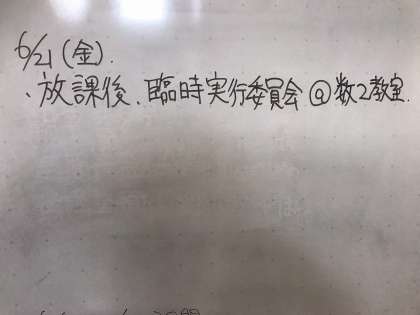 6/21(金).
、放課後、臨時実行委員会@数2教室.